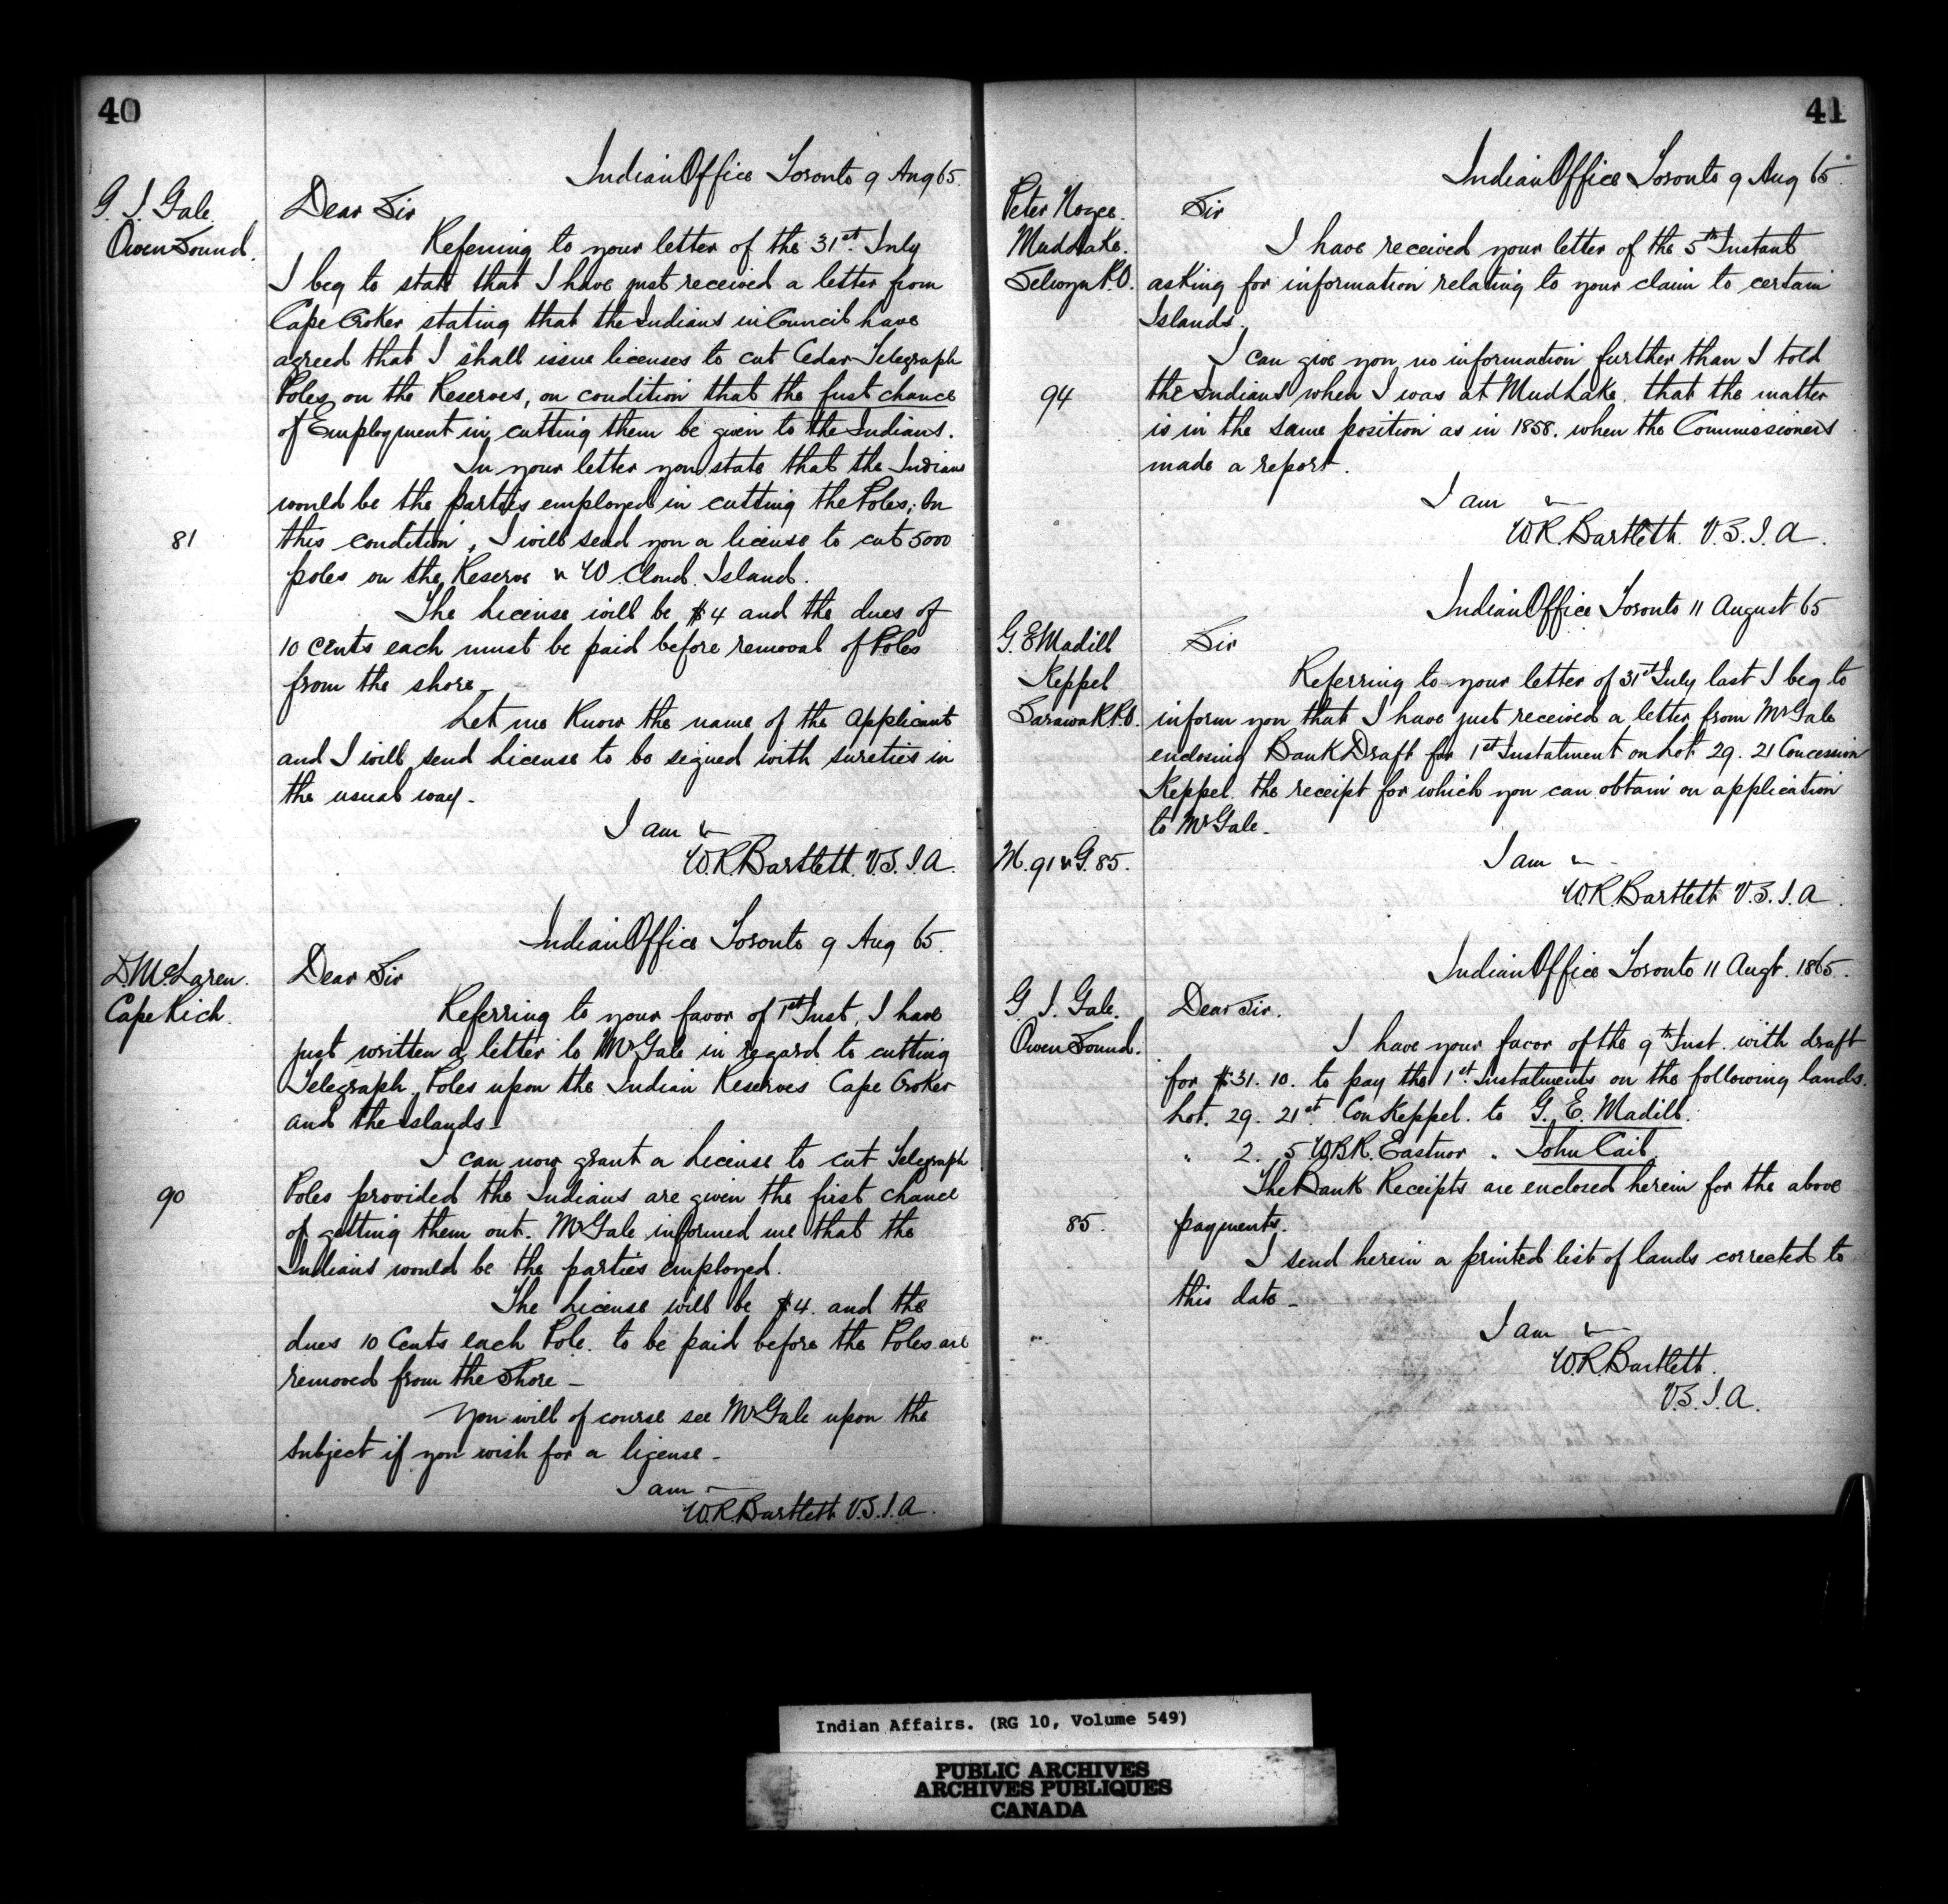 40
Indian Office Toronto 9 Aug 65.
G. J. Gale.
Owen Sound.
Dear Sir
Referring to your letter of the 31st July
I beg to state that I have just received a letter from
Cape Croker stating that the Indians in Council have
agreed that I shall issue licenses to cut Cedar Telegraph
Poles on the Reserves, on condition that the first chance
of Employment in cutting them be given to the Indians.
In your letter you state that the Indians
would be the parties employed in cutting the Poles; On
81
this condition, I will send you a license to cut 5000
poles on the Reserve & W. Cloud Island.
The License will be $4 and the dues of
10 cents each must be paid before removal of Poles
from the shore -
Let me Know the name of the applicant
and I will send License to be signed with sureties in
the usual way -
I am &
W.R. Bartlett. V.S.I.A.
Indian Office Toronto 9 Aug 65.
D. McLaren.
Cape Rich.
Dear Sir
Referring to your favor of 1st Inst, I have
just written a letter to Mr Gale in regard to cutting
Telegraph Poles upon the Indian Reserves Cape Croker
and the Islands -
I can now grant a License to cut Telegraph
90
Poles provided the Indians are given the first chance
of getting them out. Mr Gale informed me that the
Indians would be the parties employed.
The License will be $4. and the
dues 10 Cents each Pole. to be paid before the Poles are
removed from the Shore -
You will of course see Mr Gale upon the
Subject if you wish for a license -
I am
W.R. Bartlett V.S.I.A.
41
Indian Office Toronto 9 Aug 65.
Peter Noges.
Mud Lake.
Selwyn P.O.
Sir
I have received your letter of the 5th Instant
asking for information relating to your claim to certain
Islands.
I can give you no information further than I told
94
the Indians when I was at Mud Lake. that the matter
is in the same position as in 1858. when the Commissioners
made a report.
I am &
W.R. Bartlett. V.S.I.A.
Indian Office Toronto 11 August 65
G. E Madill
Keppel
Sarawak P.O.
Sir
Referring to your letter of 31st July last I beg to
inform you that I have just received a letter from Mr Gale
enclosing Bank Draft for 1st Instalment on Lot 29. 21 Concession
Keppel. the receipt for which you can obtain on application
to Mr Gale -
I am &
M. 91 & G. 85.
W.R. Bartlett V.S.I.A.
Indian Office Toronto 11 Augt. 1865.
G. J. Gale.
Owen Sound.
Dear Sir.
I have your favor of the 9th Inst. with draft
for $31.10. to pay the 1st Instalments on the following lands.
Lot. 29. 21st Con Keppel. to G. E. Madill.
" 2. 5 W.B.R. Eastnor " John
The Bank Receipts are enclosed herein for the above
85.
payments.
I send herein a printed list of lands corrected to
this date -
I am &
W.R. Bartlett.
V.S.I.A.
Indian Affairs. (RG 10, Volume 549)
PUBLIC ARCHIVES
ARCHIVES PUBLIQUES
CANADA